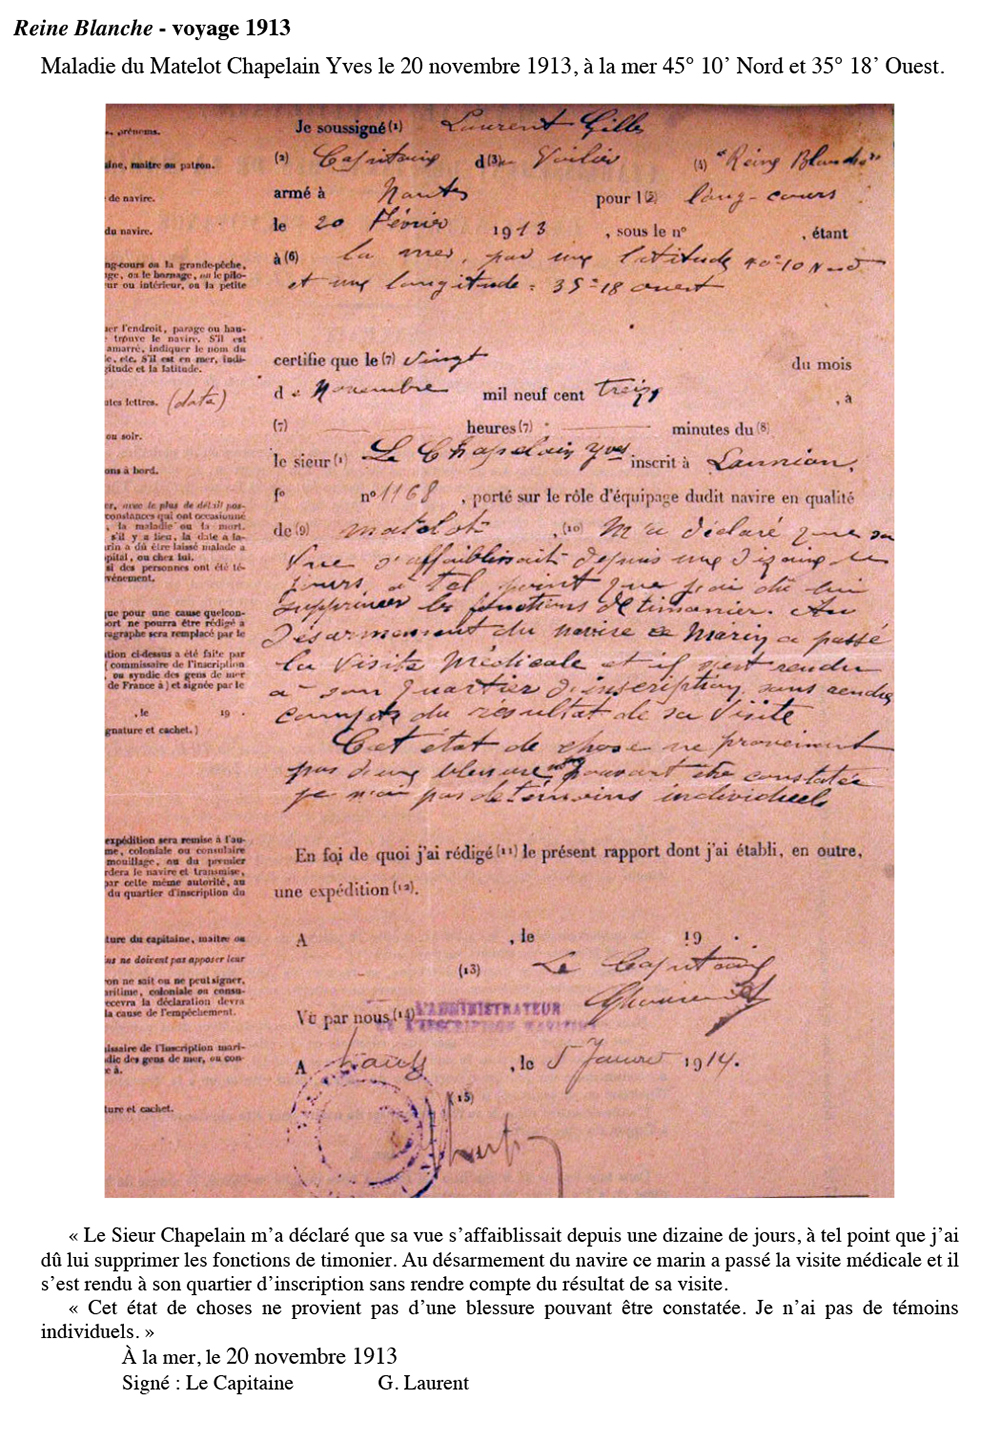 Reine Blanche - voyage 1913
Maladie du Matelot Chapelain Yves le 20 novembre 1913, à la mer 45° 10’ Nord et 35° 18’ Ouest.
, prénoms.
Je soussigné (1) Laurent Gilles
ine, maître ou patron.
(2) Capitaine d(3)u Voilier (4) "Reine Blanche"
de navire.
armé à Nantes pour l(5) long-cours
du navire.
le 20 Février 1913, sous le n° , étant
à (6) la mer, par une latitude 40°10 Nord
ng-cours ou la grande-pêche,
ge, ou le bornage, ou le pilo-
ur ou intérieur, ou la petite
et une longitude = 35°18 ouest
er l'endroit, parage ou hau-
trouve le navire. S'il est
amarré, indiquer le nom du
e, etc. S'il est en mer, indi-
gitude et la latitude.
certifie que le (7) vingt du mois
utes lettres. (data)
de Novembre mil neuf cent treize, à
ou soir.
(7) heures (7) minutes du (8)
ons à bord.
le sieur (1) Le Chapelain Yves inscrit à Lannion,
f° n° 1168, porté sur le rôle d'équipage dudit navire en qualité
er, avec le plus de détail pos-
constances qui ont occasionné
, la maladie ou la mort.
s'il y a lieu, la date a la-
rin a dû être laissé malade a
pital, ou chez lui.
si des personnes ont été té-
vénement.
de (9) matelot, (10) M'a déclaré que sa
vue s'affaiblissait depuis une dizaine de
jours, a tel point que j'ai dû lui
supprimer les fonctions de timonier. Au
désarmement du navire ce Marin a passé
la visite Médicale et il s'est rendu
a son quartier d'inscription, sans rendre
compte du résultat de sa visite
que pour une cause quelcon-
ort ne pourra être rédigé a
ragraphe sera remplacé par le
tion ci-dessus a été faite par
( commissaire de l'inscription
, ou syndic des gens de mer
de France à ) et signée par le
, le 19 .
gnature et cachet. )
Cet état de chose ne provient
pas d'une blessure pouvant être constatée
je n'ai pas de témoins individuels
expédition sera remise à l'au-
me, coloniale ou consulaire
mouillage, ou du premier
rdera le navire et transmise,
par cette même autorité, au
du quartier d'inscription du
En foi de quoi j'ai rédigé (11) le présent rapport dont j'ai établi, en outre,
une expédition (12).
ture du capitaine, maître ou
ns ne doivent pas apposer leur
A , le 19 .
on ne sait ou ne peut signer,
aritime, coloniale ou consu-
ecevra la déclaration devra
la cause de l'empêchement.
(13) Le Capitaine
GLaurent
Vu par nous (14) L'ADMINISTRATEUR
DE L'INSCRIPTION MARITIME
issaire de l'Inscription mari-
dic des gens de mer, ou con-
e à.
A Nantes, le 5 Janvier 1914.
ture et cachet.
(15)
« Le Sieur Chapelain m’a déclaré que sa vue s’affaiblissait depuis une dizaine de jours, à tel point que j’ai
dû lui supprimer les fonctions de timonier. Au désarmement du navire ce marin a passé la visite médicale et il
s’est rendu à son quartier d’inscription sans rendre compte du résultat de sa visite.
« Cet état de choses ne provient pas d’une blessure pouvant être constatée. Je n’ai pas de témoins
individuels. »
À la mer, le 20 novembre 1913
Signé : Le Capitaine G. Laurent